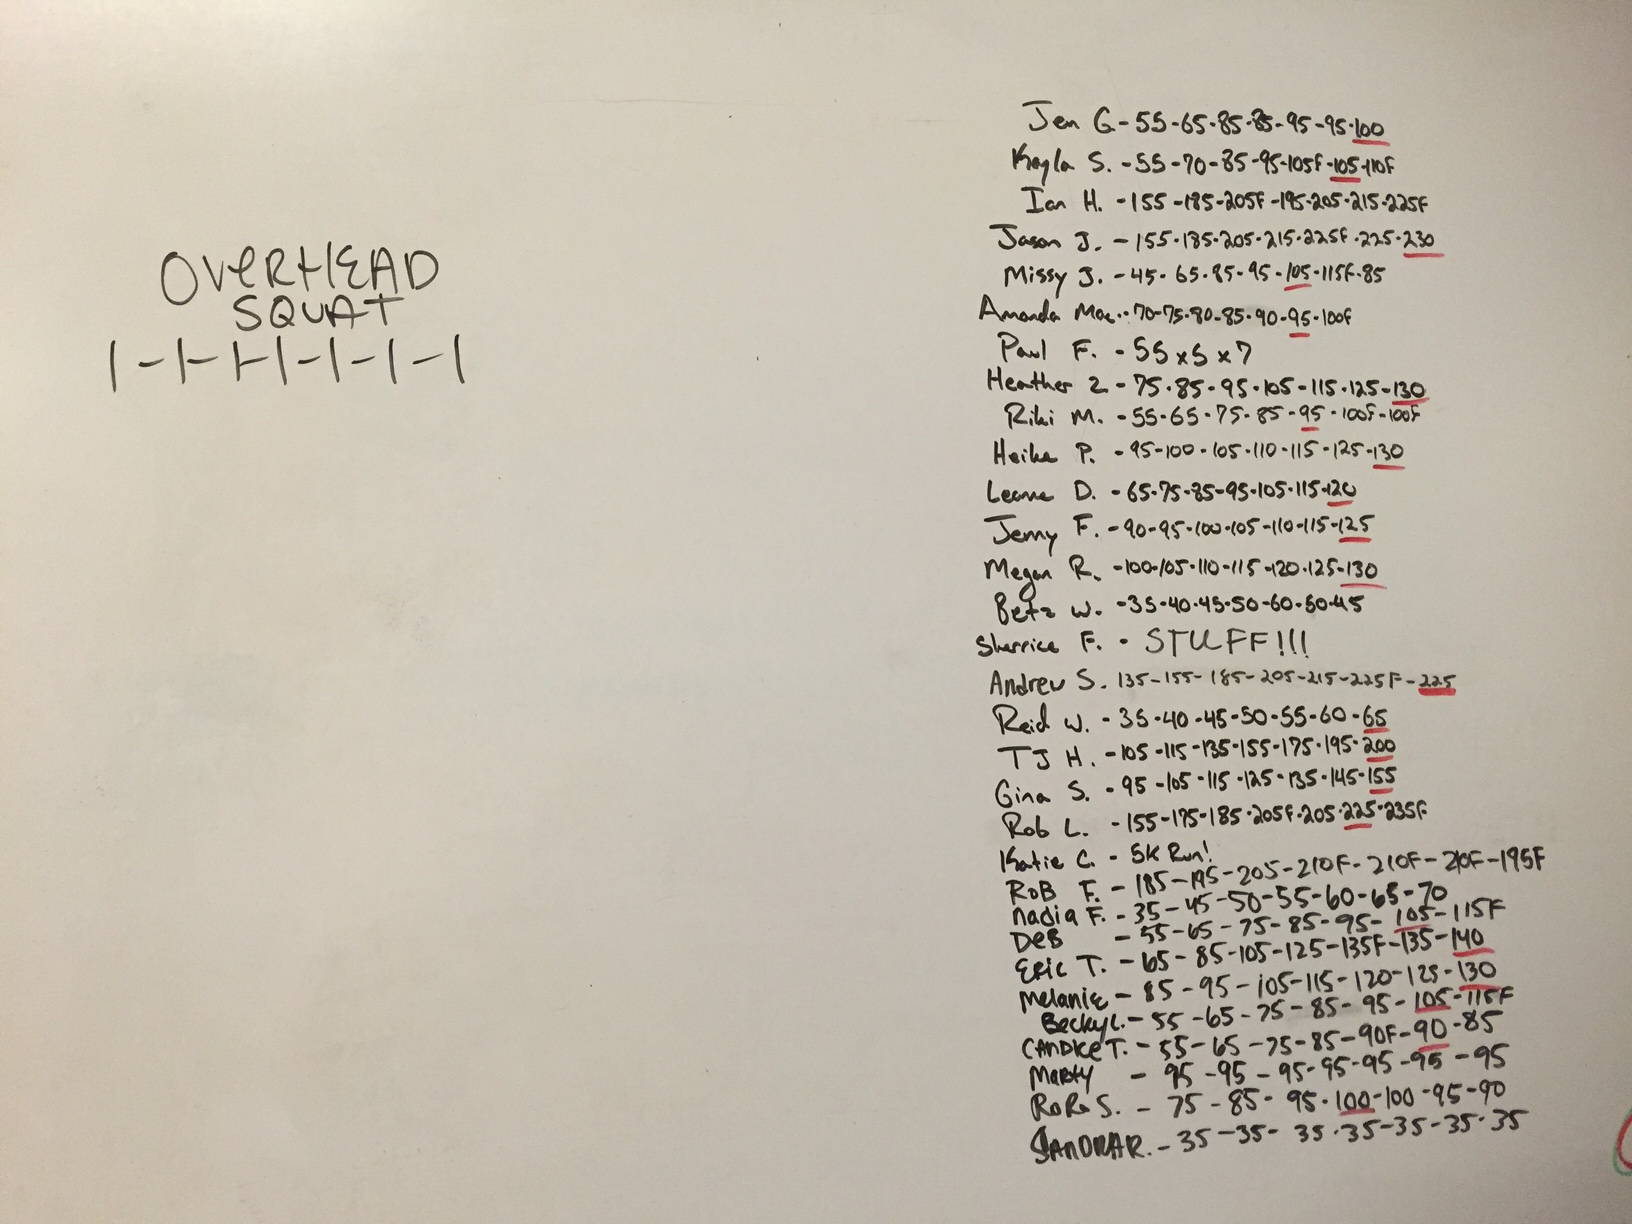 OVERHEAD
SQUAT
1-1-1-1-1-1-1
Jen G. - 55-65-85-85-95-95-100
Kayla S. - 55-70-85-95-105F-105-110F
Ian H. - 155-185-205F-195-205-215-225F
Jason J. - 155-185-205-215-225F-225-230
Missy J. - 45-65-85-95-105-115F-85
Amanda Mac. - 70-75-80-85-90-95-100F
Paul F. - 55 x 5 x 7
Heather Z - 75-85-95-105-115-125-130
Riki M. - 55-65-75-85-95-100F-100F
Heike P. - 95-100-105-110-115-125-130
Leanne D. - 65-75-85-95-105-115-120
Jenny F. - 90-95-100-105-110-115-125
Megan R. - 100-105-110-115-120-125-130
Betz W. - 35-40-45-50-60-60-45
Sherrice F. - STUFF!!!
Andrew S. 135-155-185-205-215-225F-225
Reid W. - 35-40-45-50-55-60-65
TJ H. - 105-115-135-155-175-195-200
Gina S. - 95-105-115-125-135-145-155
Rob L. - 155-175-185-205F-205-225-235F
Katie C. - 5K Run!
RoB F. - 185-195-205-210F-210F-210F-195F
Nadia F. - 35-45-50-55-60-65-70
DEB - 55-65-75-85-95-105-115F
ERIC T. - 65-85-105-125-135F-135-140
MELANIE - 85-95-105-115-120-125-130
Becky L. - 55-65-75-85-95-105-115F
CANDICE T. - 55-65-75-85-90F-90-85
MARTY - 95-95-95-95-95-95-95
RoRo S. - 75-85-95-100-100-95-90
SANDRA R. - 35-35-35-35-35-35-35